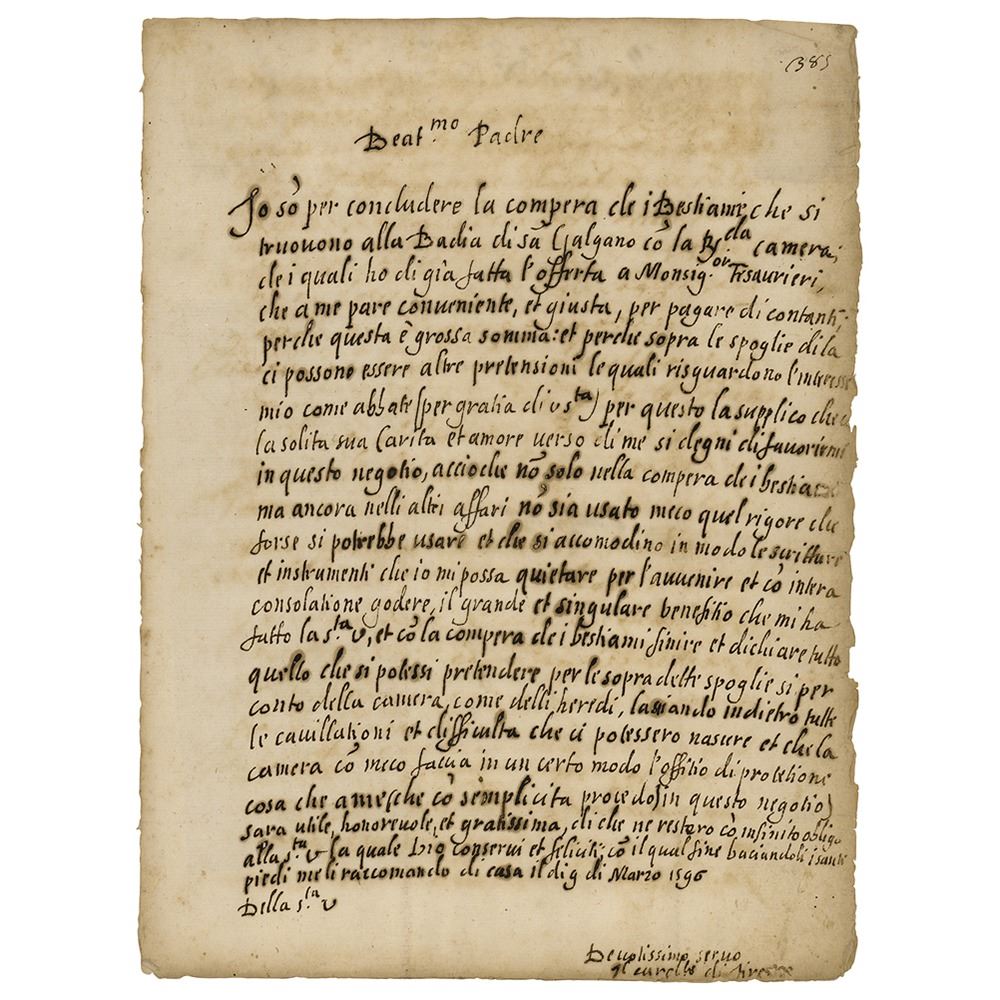 385
Beat.mo Padre
Io sō per concludere la compera de i Bestiami, che si
truouono alla Badia di sā Galgano cō la R.da camera;
de i quali ho di gia fatta l'offerta a Monsig.or Tesaurieri,
che a me pare conueniente, et giusta, per pagare di contanti;
perche questa è grossa somma: et perche sopra le spoglie di la
ci possono essere altre pretensioni le quali risguardono l'interesse
mio come abbate (per gratia di v s.ta) per questo la supplico che
la solita sua Carita et amore uerso di me si degni di fauorirmi
in questo negotio, accioche nō solo nella compera de i bestiami
ma ancora nelli altri affari nō sia usato meco quel rigore che
forse si potrebbe usare et che si accomodino in modo le scritture
et instrumenti che io mi possa quietare per l'auuenire et cō intera
consolatione godere, il grande et singulare benefitio che mi ha
fatto la s.ta v, et cō la compera de i bestiami finire et dichiare tutto
quello che si potessi pretendere per le sopra dette spoglie si per
conto della camera, come delli heredi, lasiando indietro tutte
le cauillationi et difficulta che ci potessero nascere et che la
camera cō meco faccia in un certo modo l'offitio di protetione
cosa che a me (che cō semplicita procedo in questo negotio)
sara utile, honoreuole, et gratissima, di che ne restaro cō infinito obligo
alla s.ta v la quale Dio conserui et feliciti; cō il qual fine baciandoli i santi
piedi me li raccomando di casa il di 9 di Marzo 1596
Della s.ta v
Deuotissimo seruo
di